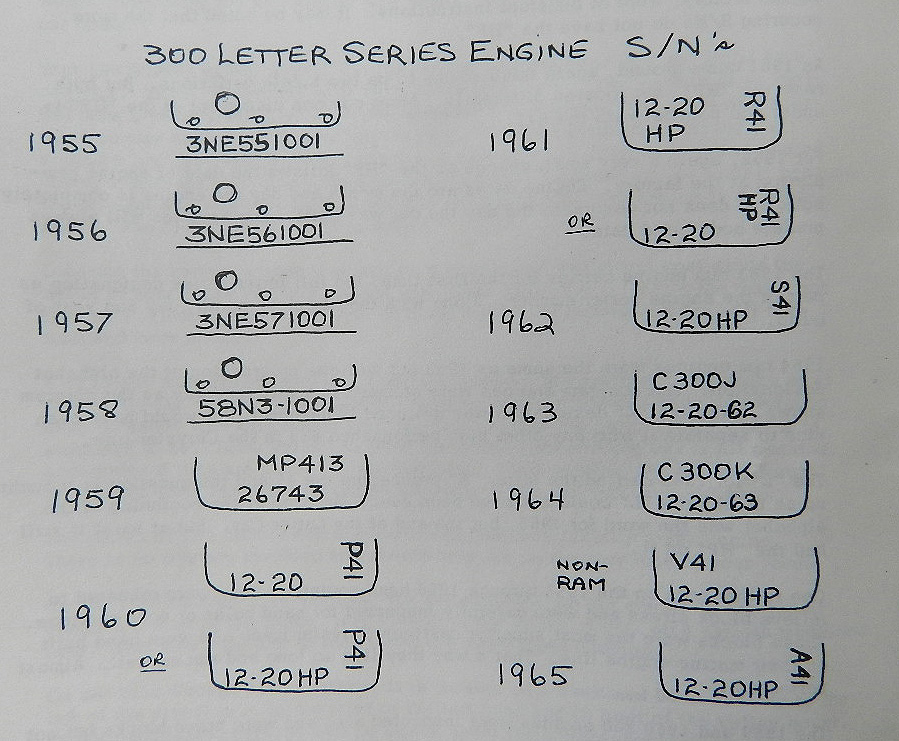 300 LETTER SERIES ENGINE S/N's
1955
3NE551001
1956
3NE561001
1957
3NE571001
1958
58N3-1001
1959
MP413
26743
1960
P41
12-20
OR
P41
12-20HP
1961
12-20
HP
R41
OR
R41
HP
12-20
1962
S41
12-20HP
1963
C300J
12-20-62
1964
C300K
12-20-63
NON-
RAM
V41
12-20 HP
1965
A41
12-20HP